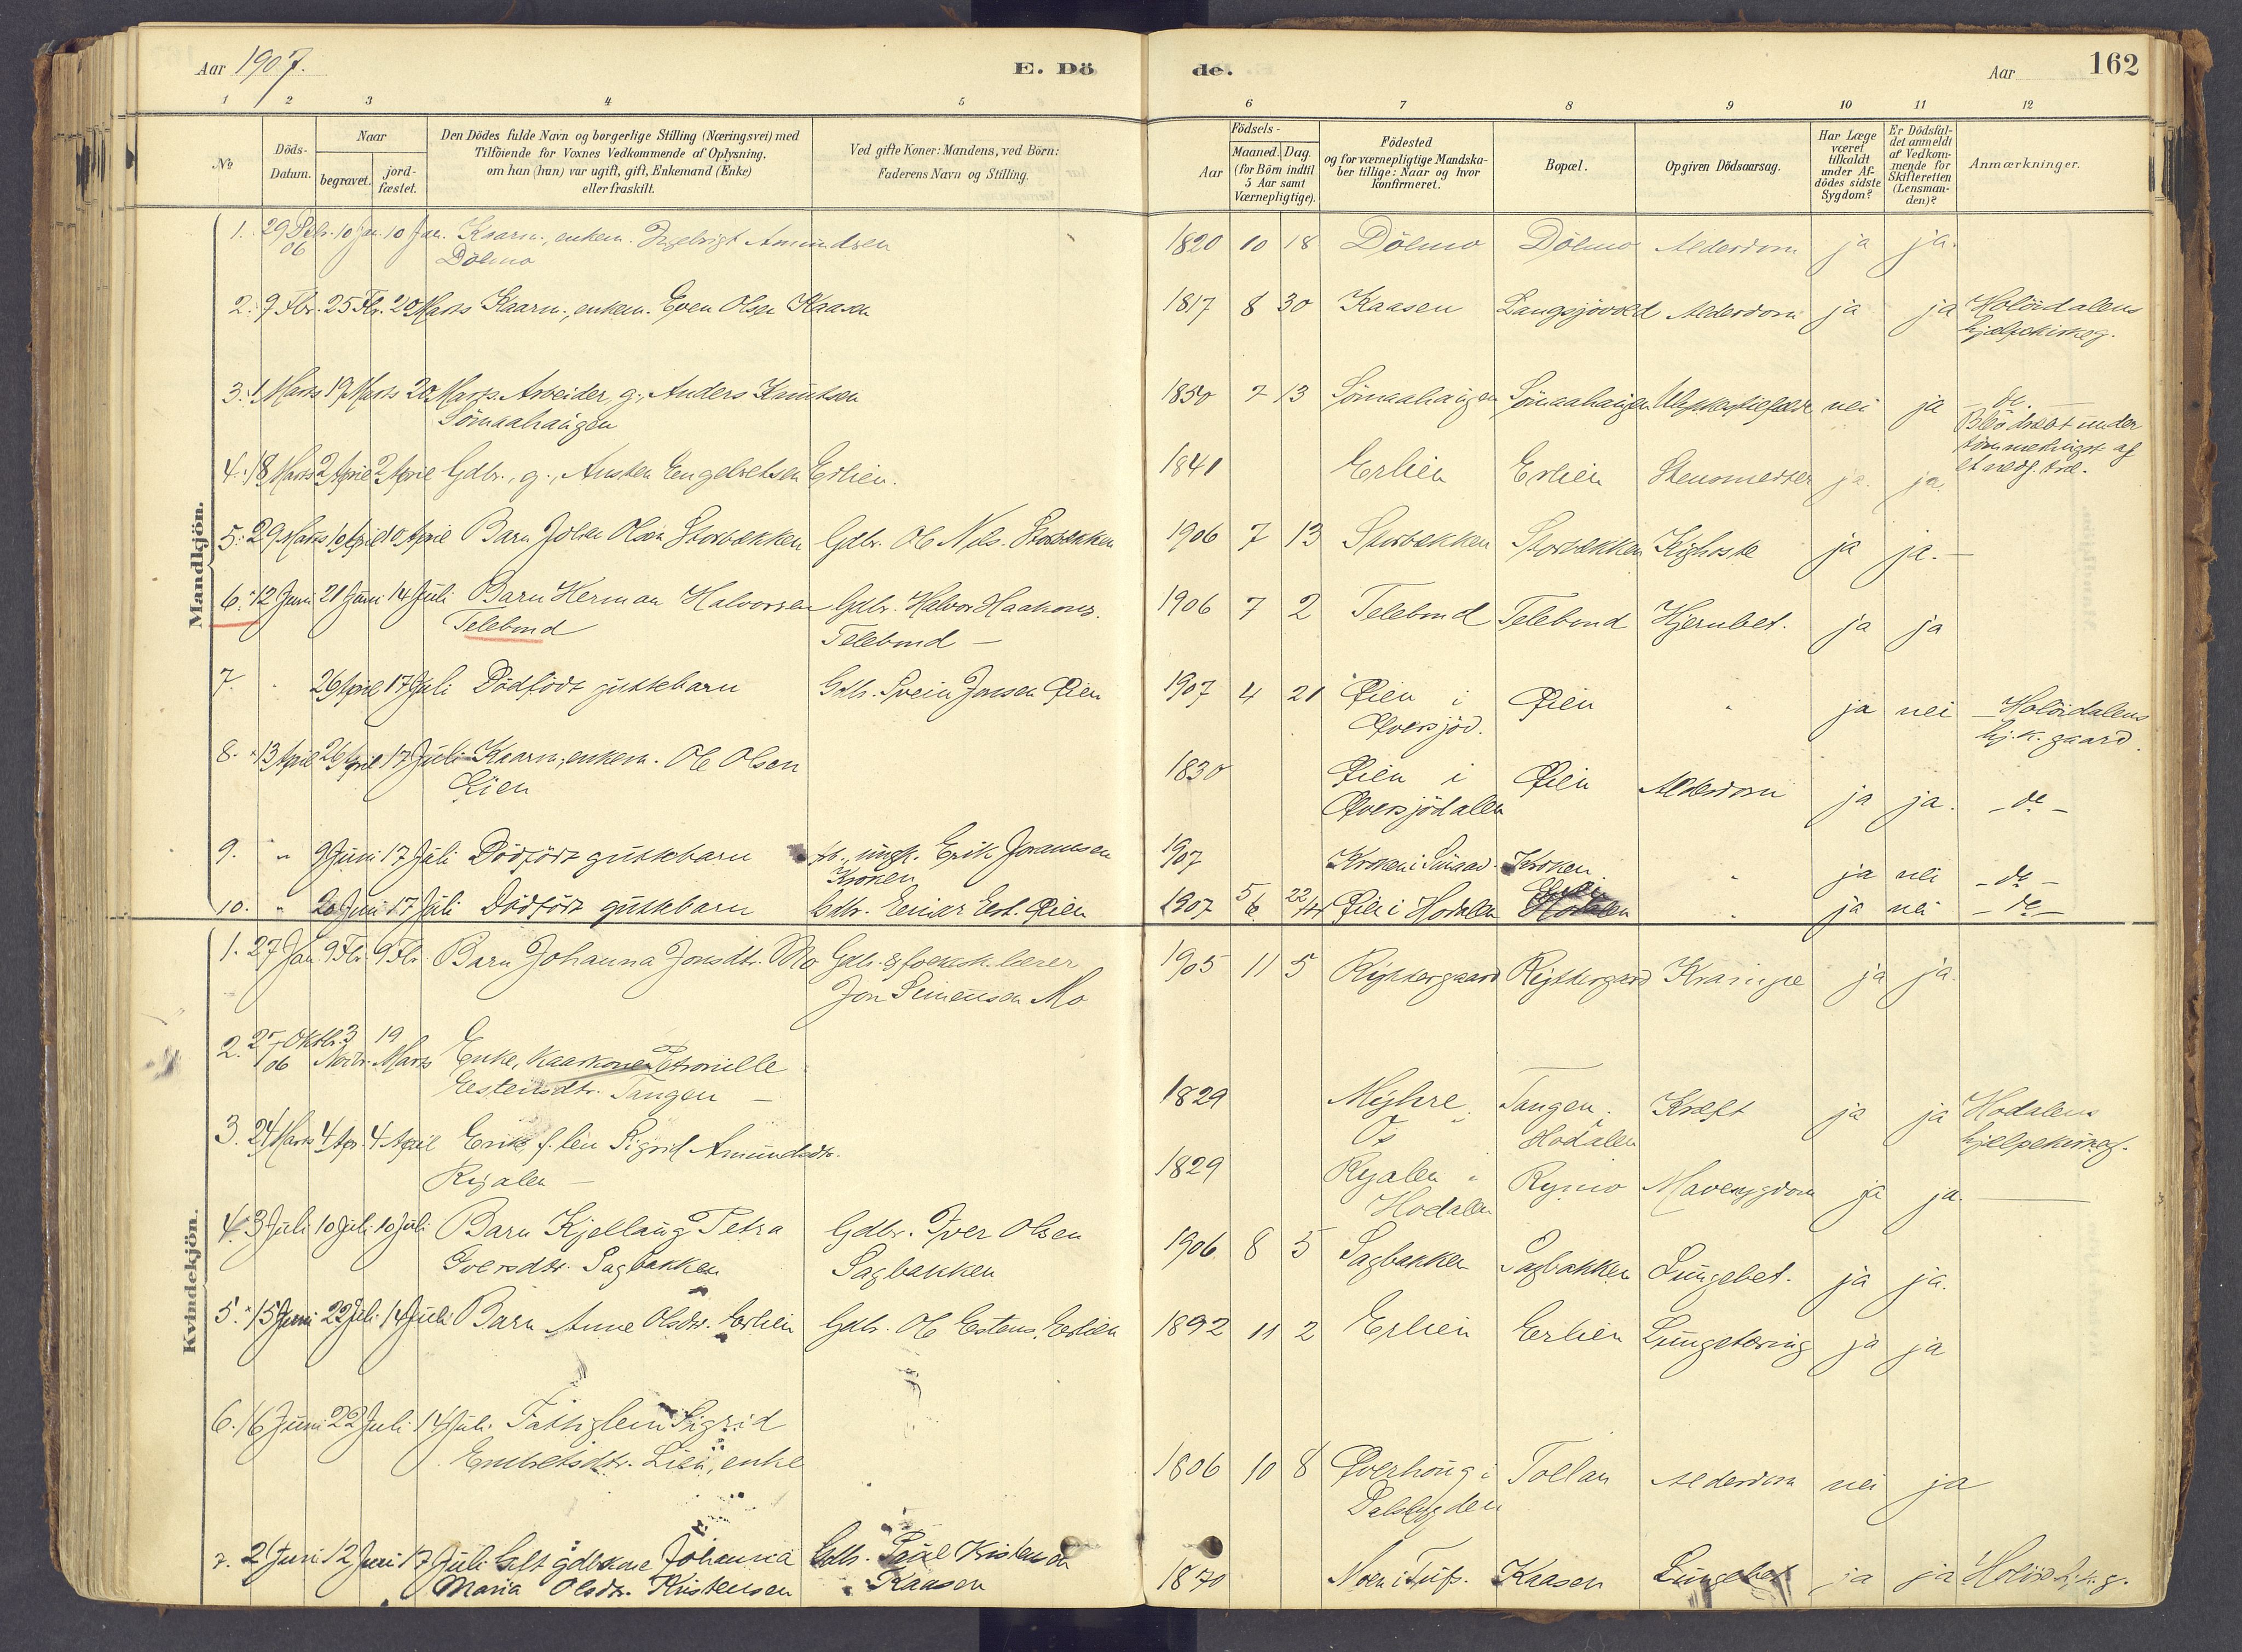 Aar 1907.
E. Dö
de.
Aar
162
1 2 3 4 5 6 7 8 9 10 11 12
No
Döds-
Datum.
Naar
begravet.
jord-
fæstet.
Den Dödes fulde Navn og borgerlige Stilling (Næringsvei) med
Tilföiende for Voxnes Vedkommende af Oplysning,
om han (hun) var ugift, gift, Enkemand (Enke)
eller fraskilt.
Ved gifte Koner: Mandens, ved Börn:
Faderens Navn og Stilling.
Födsels-
Aar
Maaned. Dag.
(for Börn indtil
5 Aar samt
Værnepligtige).
Födested
og for værnepligtige Mandska-
ber tillige: Naar og hvor
konfirmeret.
Bopæl.
Opgiven Dödsaarsag.
Har Læge
været
tilkaldt
under Af-
dödes sidste
Sygdom?
Er Dödsfal-
det anmeldt
af Vedkom-
mende for
Skifteretten
(Lensman-
den)?
Anmærkninger.
Mandkjön.
1. 29 10 Jan. 10 Jan. Kaarm., enkem. Ingebrigt Amundsen 1820 10 18 Dölmo Dölmo Alderdom ja ja.
06 Dölmo
2. 9 Fbr. 25 Fbr. 20 Marts Kaarm., enkem. Even Olsen Kaasen 1817 8 30 Kaasen Langsjövold Alderdom ja ja Holöidalens
hjælpekirkeg.
3. 1 Marts 19 Marts 20 Marts. Arbeider, g., Anders Knutsen 1850 7 13 Sömaahaugen Sömaahaugen nei ja do.
Sömaahaugen under
af
4. 18 Marts 2 April 2 April Gdbr., g., Austen Engebretsen Erlien. 1841 Erlien Erlien ja. ja.
5. 29 Marts 10 April 10 April Barn Olsen Storbekken Gdbr. Ole Nils. Storbekken 1906 7 13 Storbekken Storbekken Kighoste ja ja.
6. 12 Juni 21 Juni 14 Juli Barn Herman Halvorsen Gdbr. Halvor Haakons. 1906 7 2 Telebond Telebond Hjernbet. ja ja
Telebond Telebond
7. 26 April 17 Juli Dödfödt guttebarn Gdbr. Svein Jonsen Øien 1907 4 21 Øien i Øien " ja nei Holöidalens
Øversjöd. hj.k. gaard.
8. 13 April 26 April 17 Juli Kaarm., enkem. Ole Olsen 1830 Øien i Øien Alderdom ja ja. - do -
Øien Øversjödalen
9. " 9 Juni 17 Juli Dödfödt guttebarn ungk. Erik 1907 Kroken i Kroken. " ja nei - do -
Kroken
10. " 20 Juni 17 Juli Dödfödt guttebarn Gdbr. Einar Øien 1907 5 22 Øien i Hodalen " ja nei - do -
Kvindekjön.
1. 27 Jan. 9 Fbr. 9 Fbr. Barn Johanna Jonsdtr. Mo Gdbr. & 1905 11 5 Ryttergaard Ryttergaard Krampe ja ja.
Jon Simensen Mo
2. 25 Oktbr. 3 19
06 Novbr. Marts Enke, Kaarkone Petronille
Estensdtr. Tangen 1829 Myhre Tangen Kræft ja ja Hodalens
Os Hodalen hjelpekirkeg.
3. 24 Marts 4 Apr. 4 April Enke f. len Sigrid Amundsdtr. 1829 Ryalen i Rymo Mavesygdom ja ja.
Ryalen Hodalen
4. 3 Juli 10 Juli 10 Juli Barn Kjellaug Petra Gdbr. Iver Olsen 1906 8 5 Sagbakken Sagbakken Lungebet. ja ja.
Iversdtr. Sagbakken Sagbakken
5. 15 Juni 22 Juli 14 Juli Barn Anne Olsdtr. Erlien Gdbr. Ole Estens. Erlien 1892 11 2 Erlien Erlien Lungetæring ja ja
6. 16 Juni 22 Juli 14 Juli. Fattiglem Sigrid
Embretsdtr. Lien, enke 1806 10 8 Øverhoug i Tollan Alderdom nei ja
Dalsbygden
7. 2 Juni 12 Juni 17 Juli Gift gdbrkone Johanna Gdb. Paul Kristensen 1870 Moen i Tufs. Kaasen Lungebet ja ja
Maria Olsdtr. Kristensen Kaasen